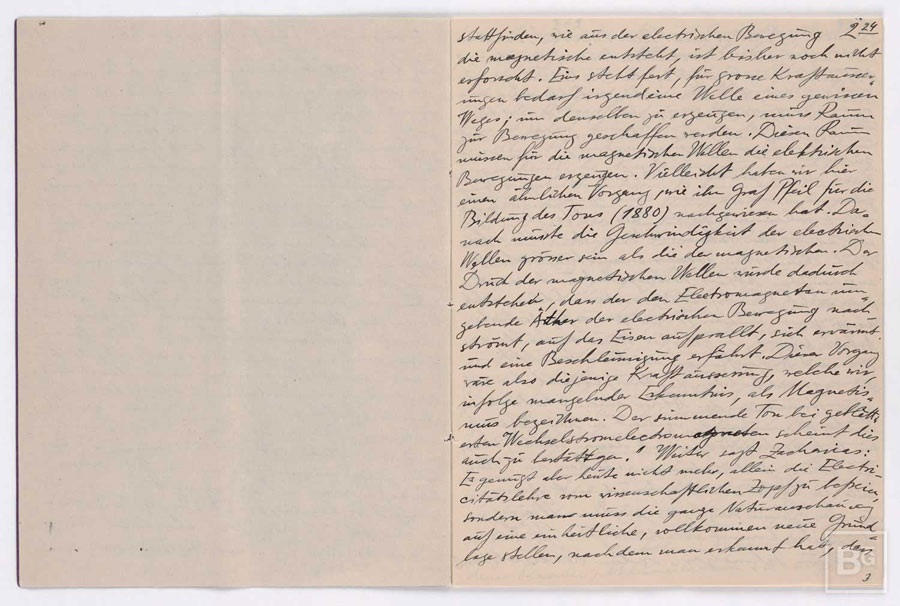 2 24
stattfinden, wie aus der electrischen Bewegung
die magnetische entsteht, ist bisher noch nicht
erforscht. Eins steht fest, für grosse Kraftäusser-
ungen bedarf irgendeine Welle eines gewissen
Weges; um denselben zu erzeugen, muss Raum
zur Bewegung geschaffen werden. Diesen Raum
müssen für die magnetischen Wellen die elektrischen
Bewegungen erzeugen. Vielleicht haben wir hier
einen ähnlichen Vorgang, wie ihn Graf Pfeil für die
Bildung des Tons (1880) nachgewiesen hat. Da-
nach müsste die Geschwindigkeit der electrischen
Wellen grösser sein als die der magnetischen. Der
Druck der magnetischen Wellen würde dadurch
entstehen, dass der den Electromagneten um-
gebende Äther der electrischen Bewegung nach
strömt, auf das Eisen aufprallt, sich erwärmt
und eine Beschleunigung erfährt. Dieser Vorgang
wäre also diejenige Kraftäusserung, welche wir,
infolge mangelnder Erkenntnis, als Magnetis-
mus bezeichnen. Der summende Ton bei geblätt-
erten Wechselstromelectromagneten scheint dies
auch zu bestättgen." Weiter sagt Zacharias:
Es genügt aber heute nicht mehr, allein die Electri-
citätslehre vom wissenschaftlichen Zopf zu befreien,
sondern man muss die ganze Naturanschauung
auf eine einheitliche, vollkommen neue Grund-
lage stellen, nachdem man erkannt hat, dass
3
BG